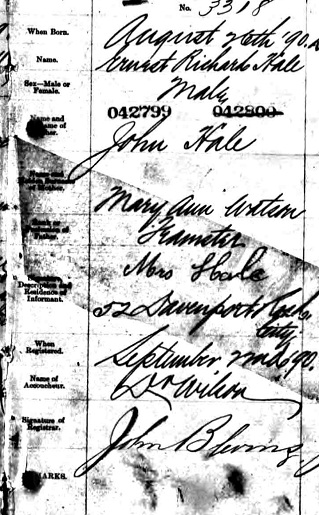 No. 3318
When Born.
August 26th 90.
Name.
Ernest Richard Hale
Sex—Male or
Female.
Male
042799 042800
Name and
Surname of
Father.
John Hale
Name and
Maiden Surname
of Mother.
Mary Ann Watson
Rank or
Profession of
Father.
Teamster
Signature,
Description and
Residence of
Informant.
Mrs Hale
52 Davenport Road
City
When
Registered.
September 22nd 90.
Name of
Accoucheur.
Dr Wilson
Signature of
Registrar.
John Blevins
REMARKS.